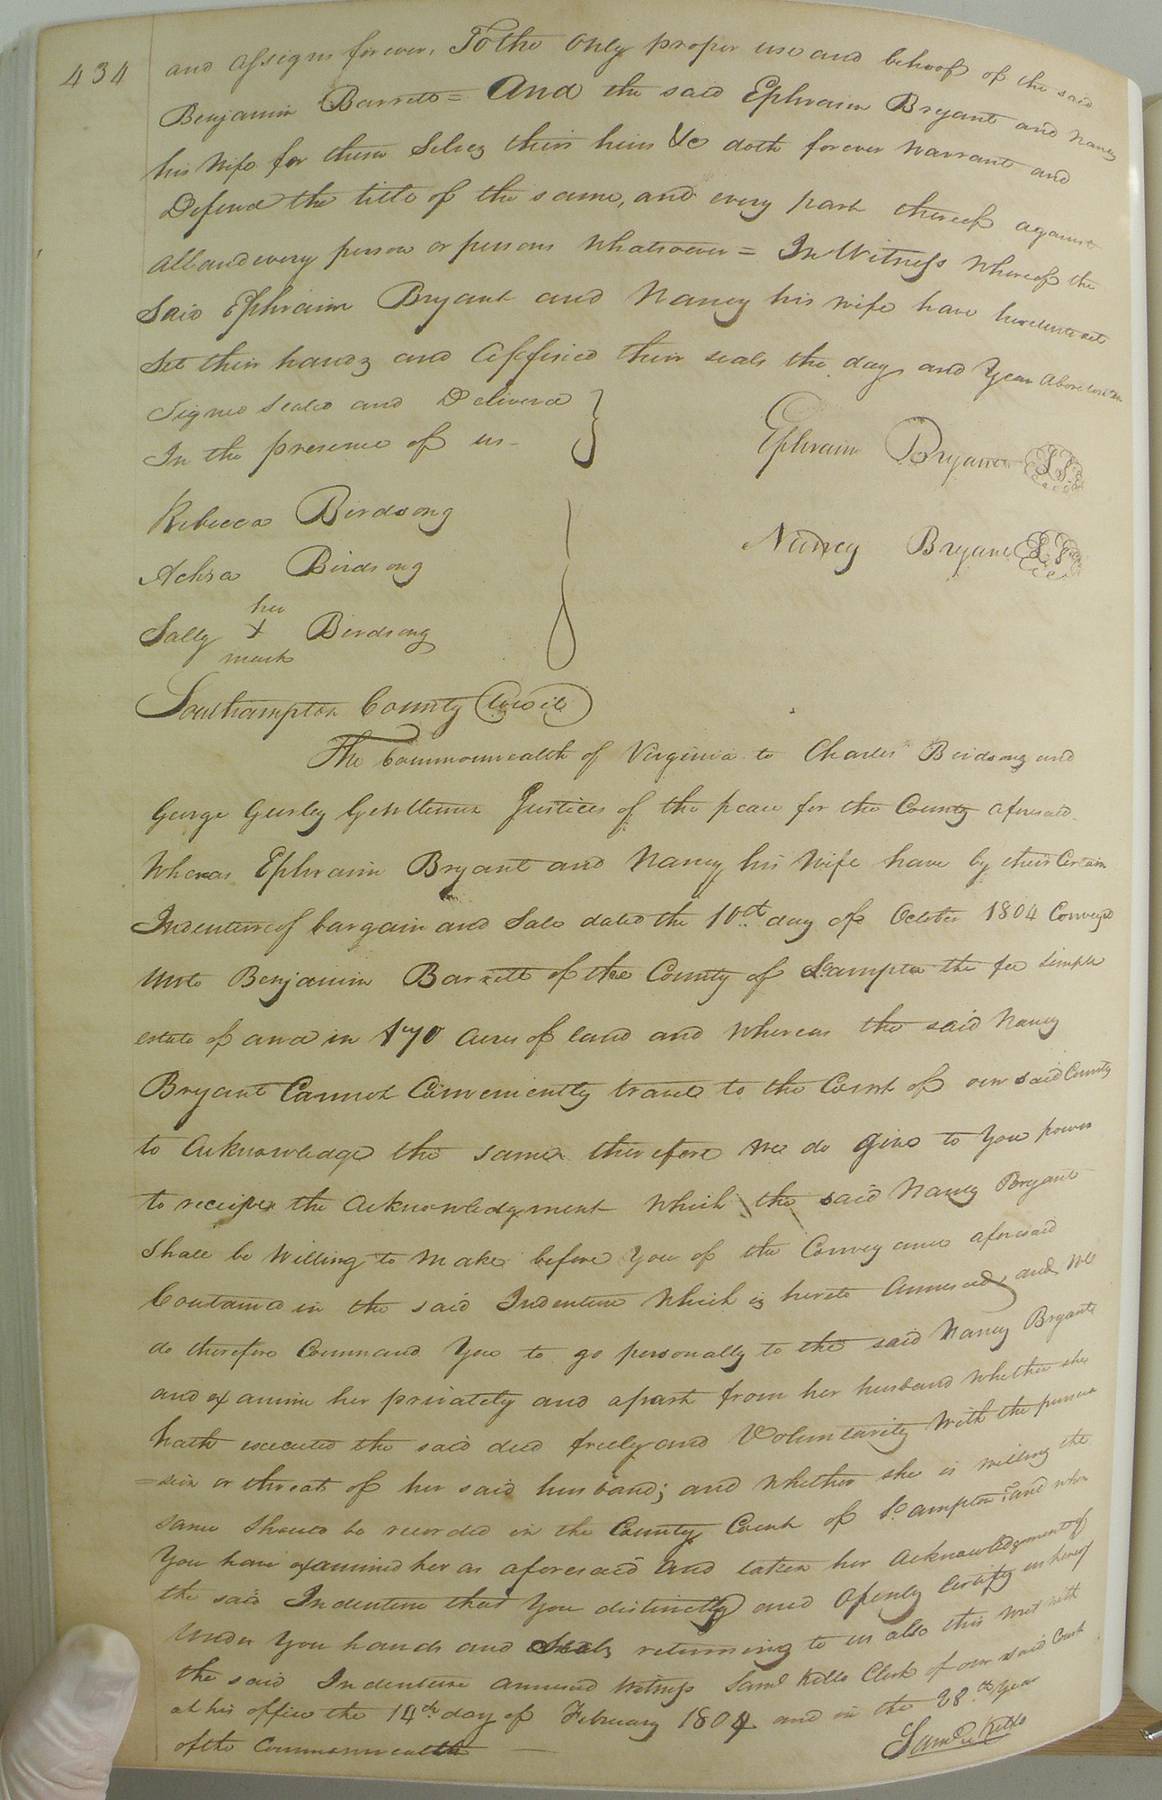 434
and assigns forever, To the only proper use and behoof of the said
Benjamin Barrett = And the said Ephraim Bryant and Nancy
his Wife for them Selvez their heirs &c doth forever Warrant and
Defend the title of the same, and every part thereof against
all and every person or persons whatsoever = In Witness whereof the
Said Ephraim Bryant and Nancy his wife have hereunto set
Set their handz and Affixed their seals the day and Year above written
Signed Sealed and Deliverd
In the presence of us -
Ephraim Bryant LS
Rebecca Birdsong
Nancy Bryant LS
Achsa Birdsong
her
Sally X Birdsong
mark
Southampton County (towit)
The Commonwealth of Virginia to Charles Birdsong and
George Gurley Gentlemen Justices of the peace for the County aforesaid
Whereas Ephraim Bryant and Nancy his Wife have by their Certain
Indenture of bargain and Sale dated the 10th day of October 1804 Conveyed
unto Benjamin Barrett of the County of So.ampton the fee simple
estate of and in 170 acres of land and whereas the said Nancy
Bryant Cannot Conveniently travel to the Court of our said County
to Acknowledge the same therefore we do give to You power
to receive the acknowledgement Which the said Nancy Bryant
Shall be Willing to Make before You of the Conveyance aforesaid
Containd in the said Indenture Which is hereto Annexed, and We
do therefore Command You to go personally to the said Nancy Bryant
and examine her privately and apart from her husband whether she
hath executed the said deed freely and Voluntarily With the persua
=sion or threats of her said husband; and whether she is willing the
same Should be recorded in the County Court of So.ampton and when
You have examined her as aforesaid and taken her Acknowledgment of
the said Indenture that You distinctly and Openly Certify us hereof
Under You hands and Seals returning to us also this Writ with
the said Indenture annexed Witness Saml Kello Clerk of our said Court
at his office the 14th day of February 1804 and in the 28th Year
of the Commonwealth
Saml Kello